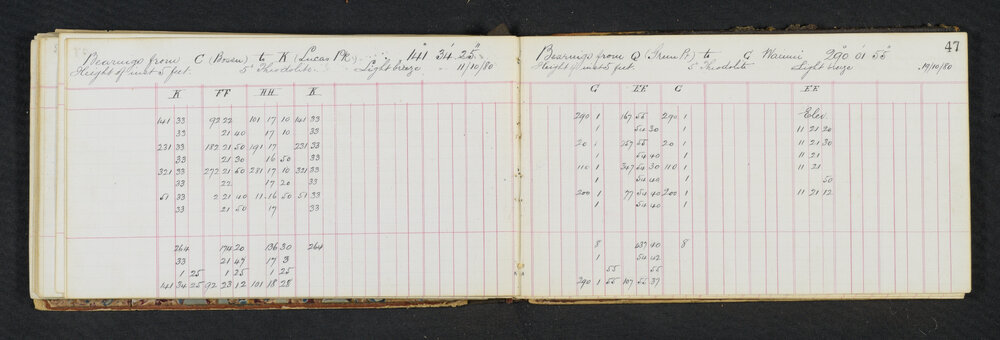 Bearings from C (Bosen) to K (Lucas Pk) 141° 34' 25"
Height of inst 5 feet. 5" Thiodolite. Light breeze - 11/10/80
K FF HH K
141 33 92 22 101 17 10 141 33
33 21 40 17 10 33
231 33 182 21 50 191 17 231 33
33 21 30 16 50 33
321 33 272 21 50 281 17 10 321 33
33 22 17 20 33
51 33 2 21 40 11 16 50 51 33
33 21 50 17 33
264 174 20 136 30 264
33 21 47 17 3
1 25 1 25 1 25
141 34 25 92 23 12 101 18 28
47
Bearings from Q to G Wannii 290° 01' 55"
Height of inst 5 feet. 5" Thiodolite Light breeze 19/10/80
G EE G EE
290 1 167 55 290 1 Elev.
1 54 30 1 11 21 20
20 1 257 55 20 1 11 21 30
1 54 40 1 11 21
110 1 347 54 30 110 1 11 21
1 54 40 1 50
200 1 77 54 40 200 1 11 21 12
1 54 40 1
8 437 40 8
1 54 42
55 55
290 1 55 167 55 37